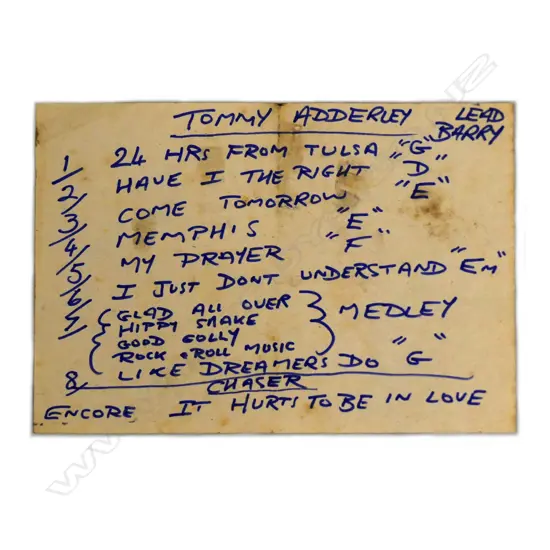 TOMMY ADDERLEY LEAD BARRY
1/ 24 HRS FROM TULSA "G"
2/ HAVE I THE RIGHT "D"
3/ COME TOMORROW "E"
4/ MEMPHIS "E"
5/ MY PRAYER "F"
6/ I JUST DONT UNDERSTAND "Em"
7/ GLAD ALL OVER
HIPPY SHAKE
GOOD GOLLY
ROCK & ROLL MUSIC
MEDLEY
8/ LIKE DREAMERS DO "G"
CHASER
ENCORE IT HURTS TO BE IN LOVE